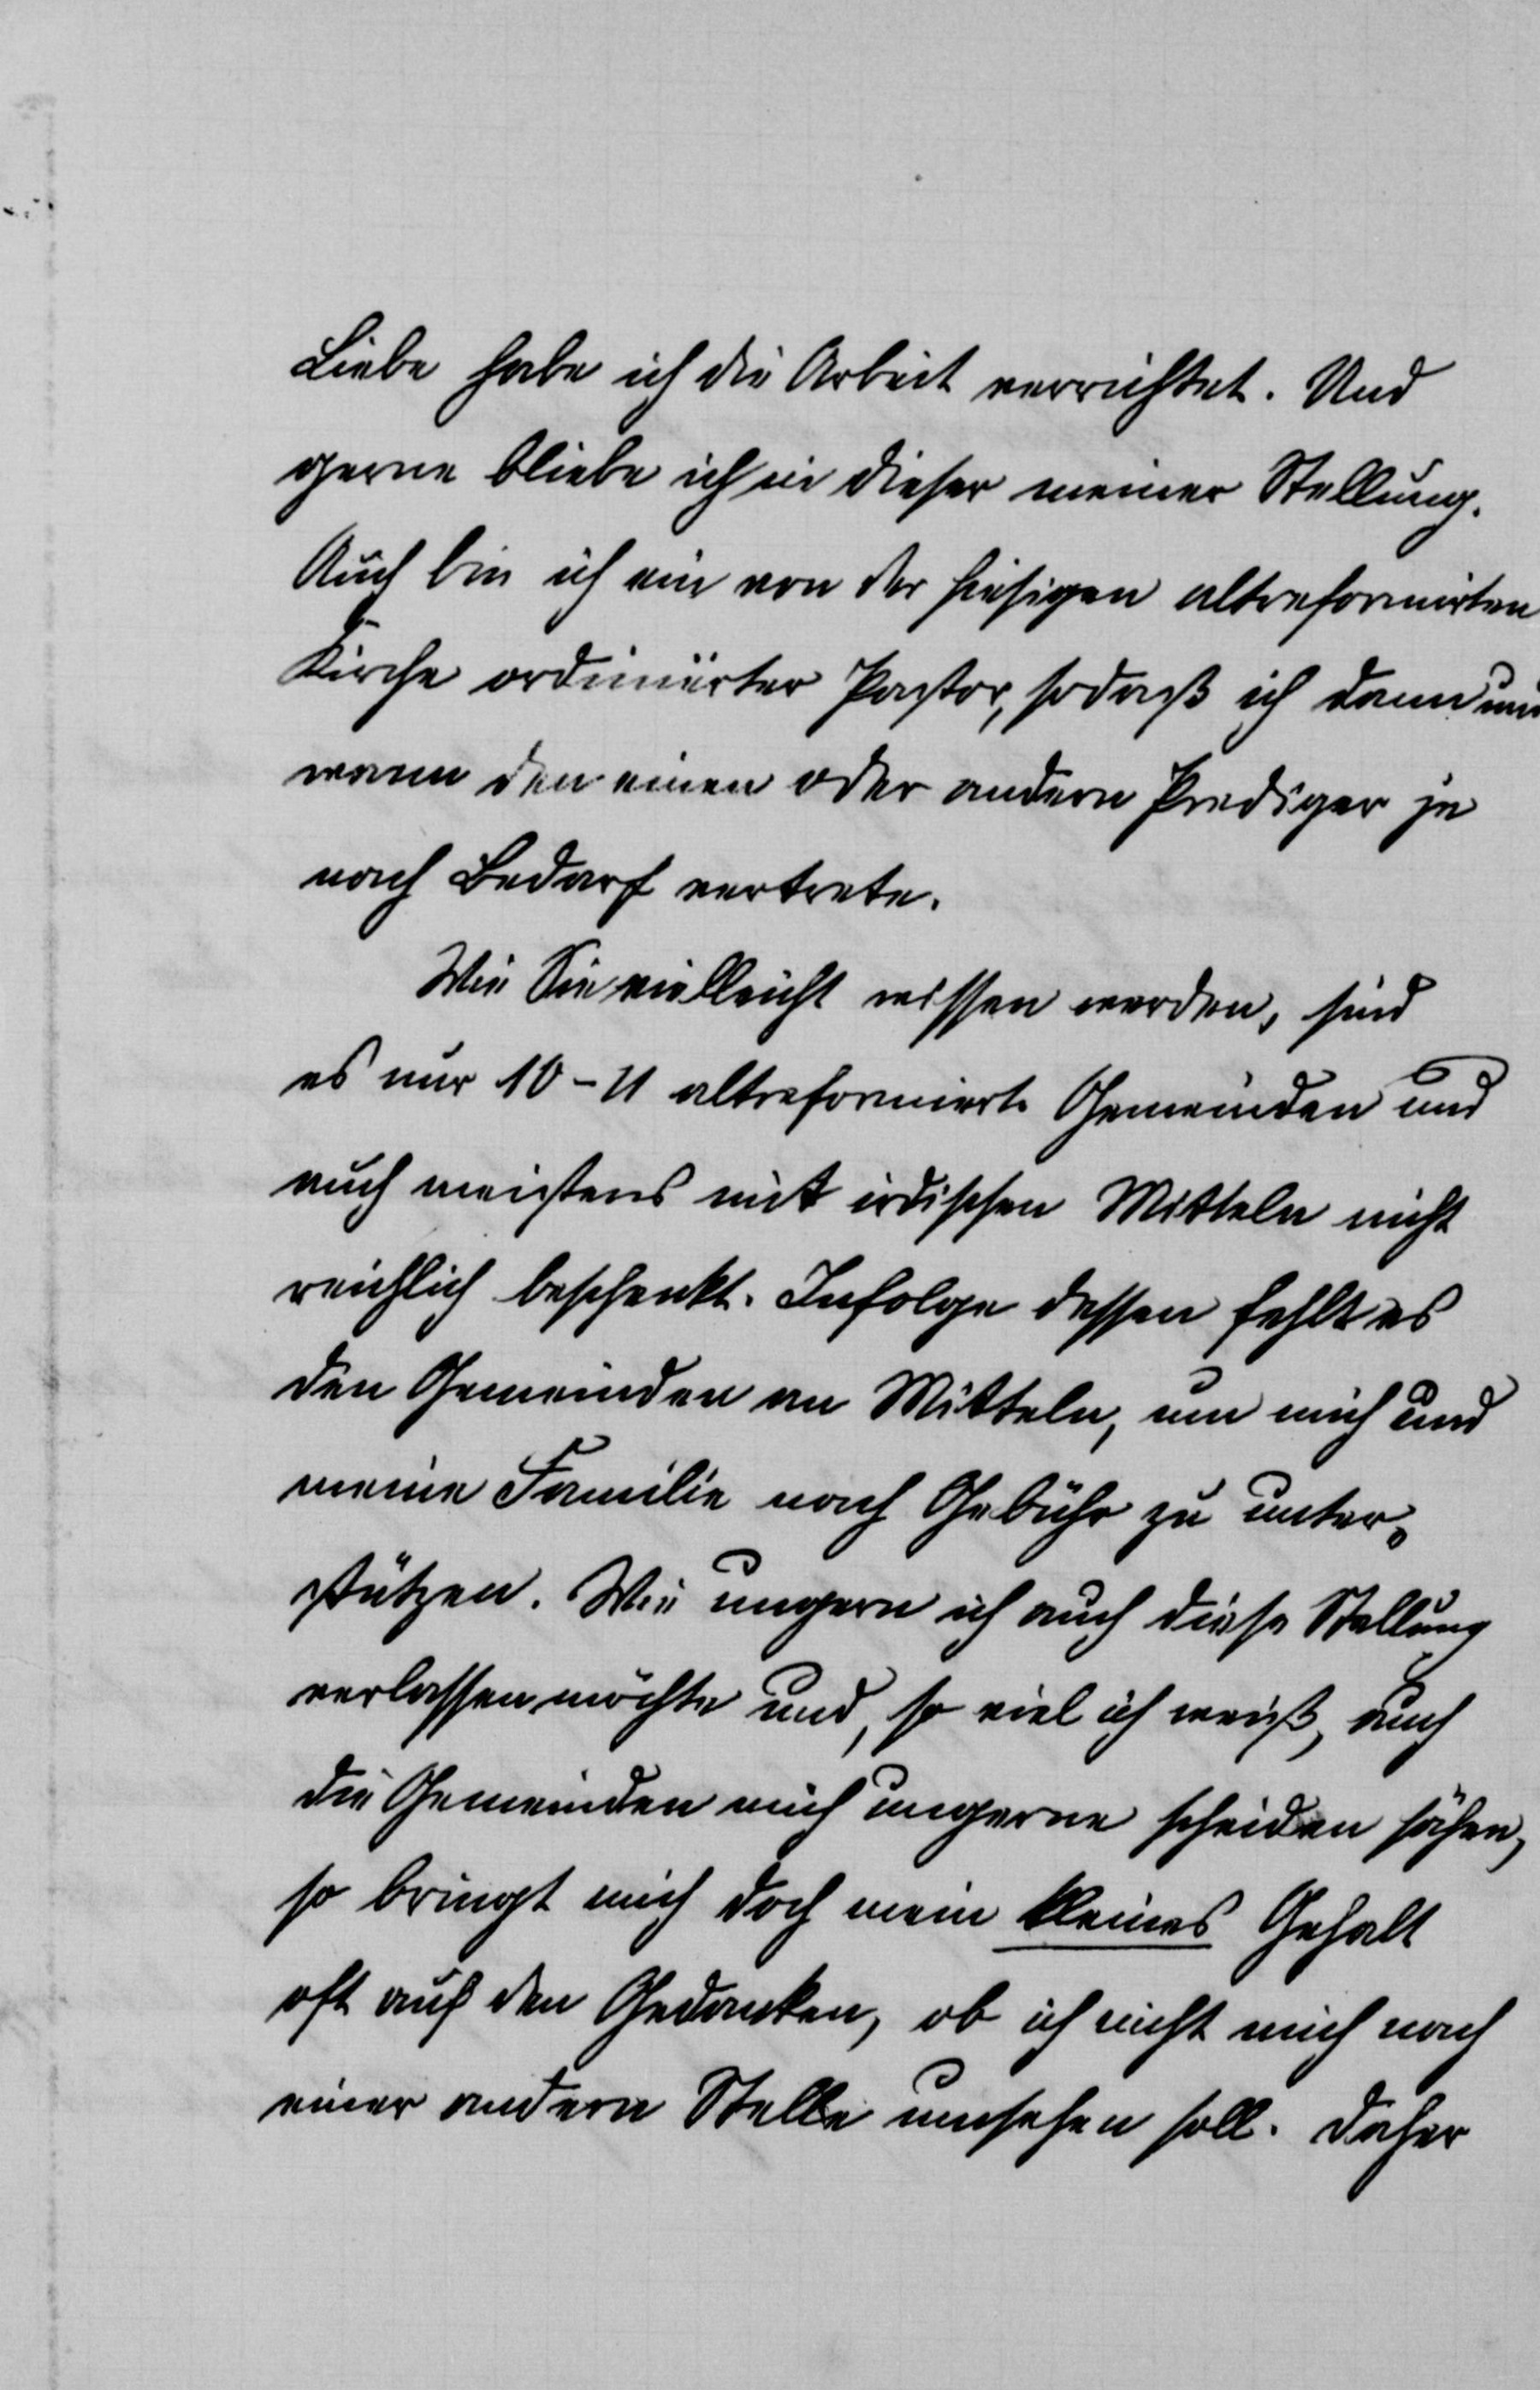 Liebe habe ich die Arbeit verrichtet. Und
gerne bliebe ich in dieser meiner Stellung.
Auch bin ich ein von der hiesigen altreformirten
Kirche ordinierter Pastor, sodaß ich dann und
wann den einen oder andern Prediger je
nach Bedarf vertrete.
Wie Sie vielleicht wissen werden, sind
es nur 10-11 altreformierte Gemeinden und
auch meistens mit irdischen Mitteln nicht
reichlich beschenkt. Infolge dessen fehlt es
den Gemeinden an Mitteln, um mich und
meine Familie nach Gebühr zu unter-
stützen. Wie ungern ich auch diese Stellung
verlassen möchte und, so viel ich weiß, auch
die Gemeinden mich ungerne scheiden sähen,
so bringt mich doch mein kleines Gehalt
oft auf den Gedanken, ob ich nicht mich nach
einer andern Stelle umsehen soll. Daher